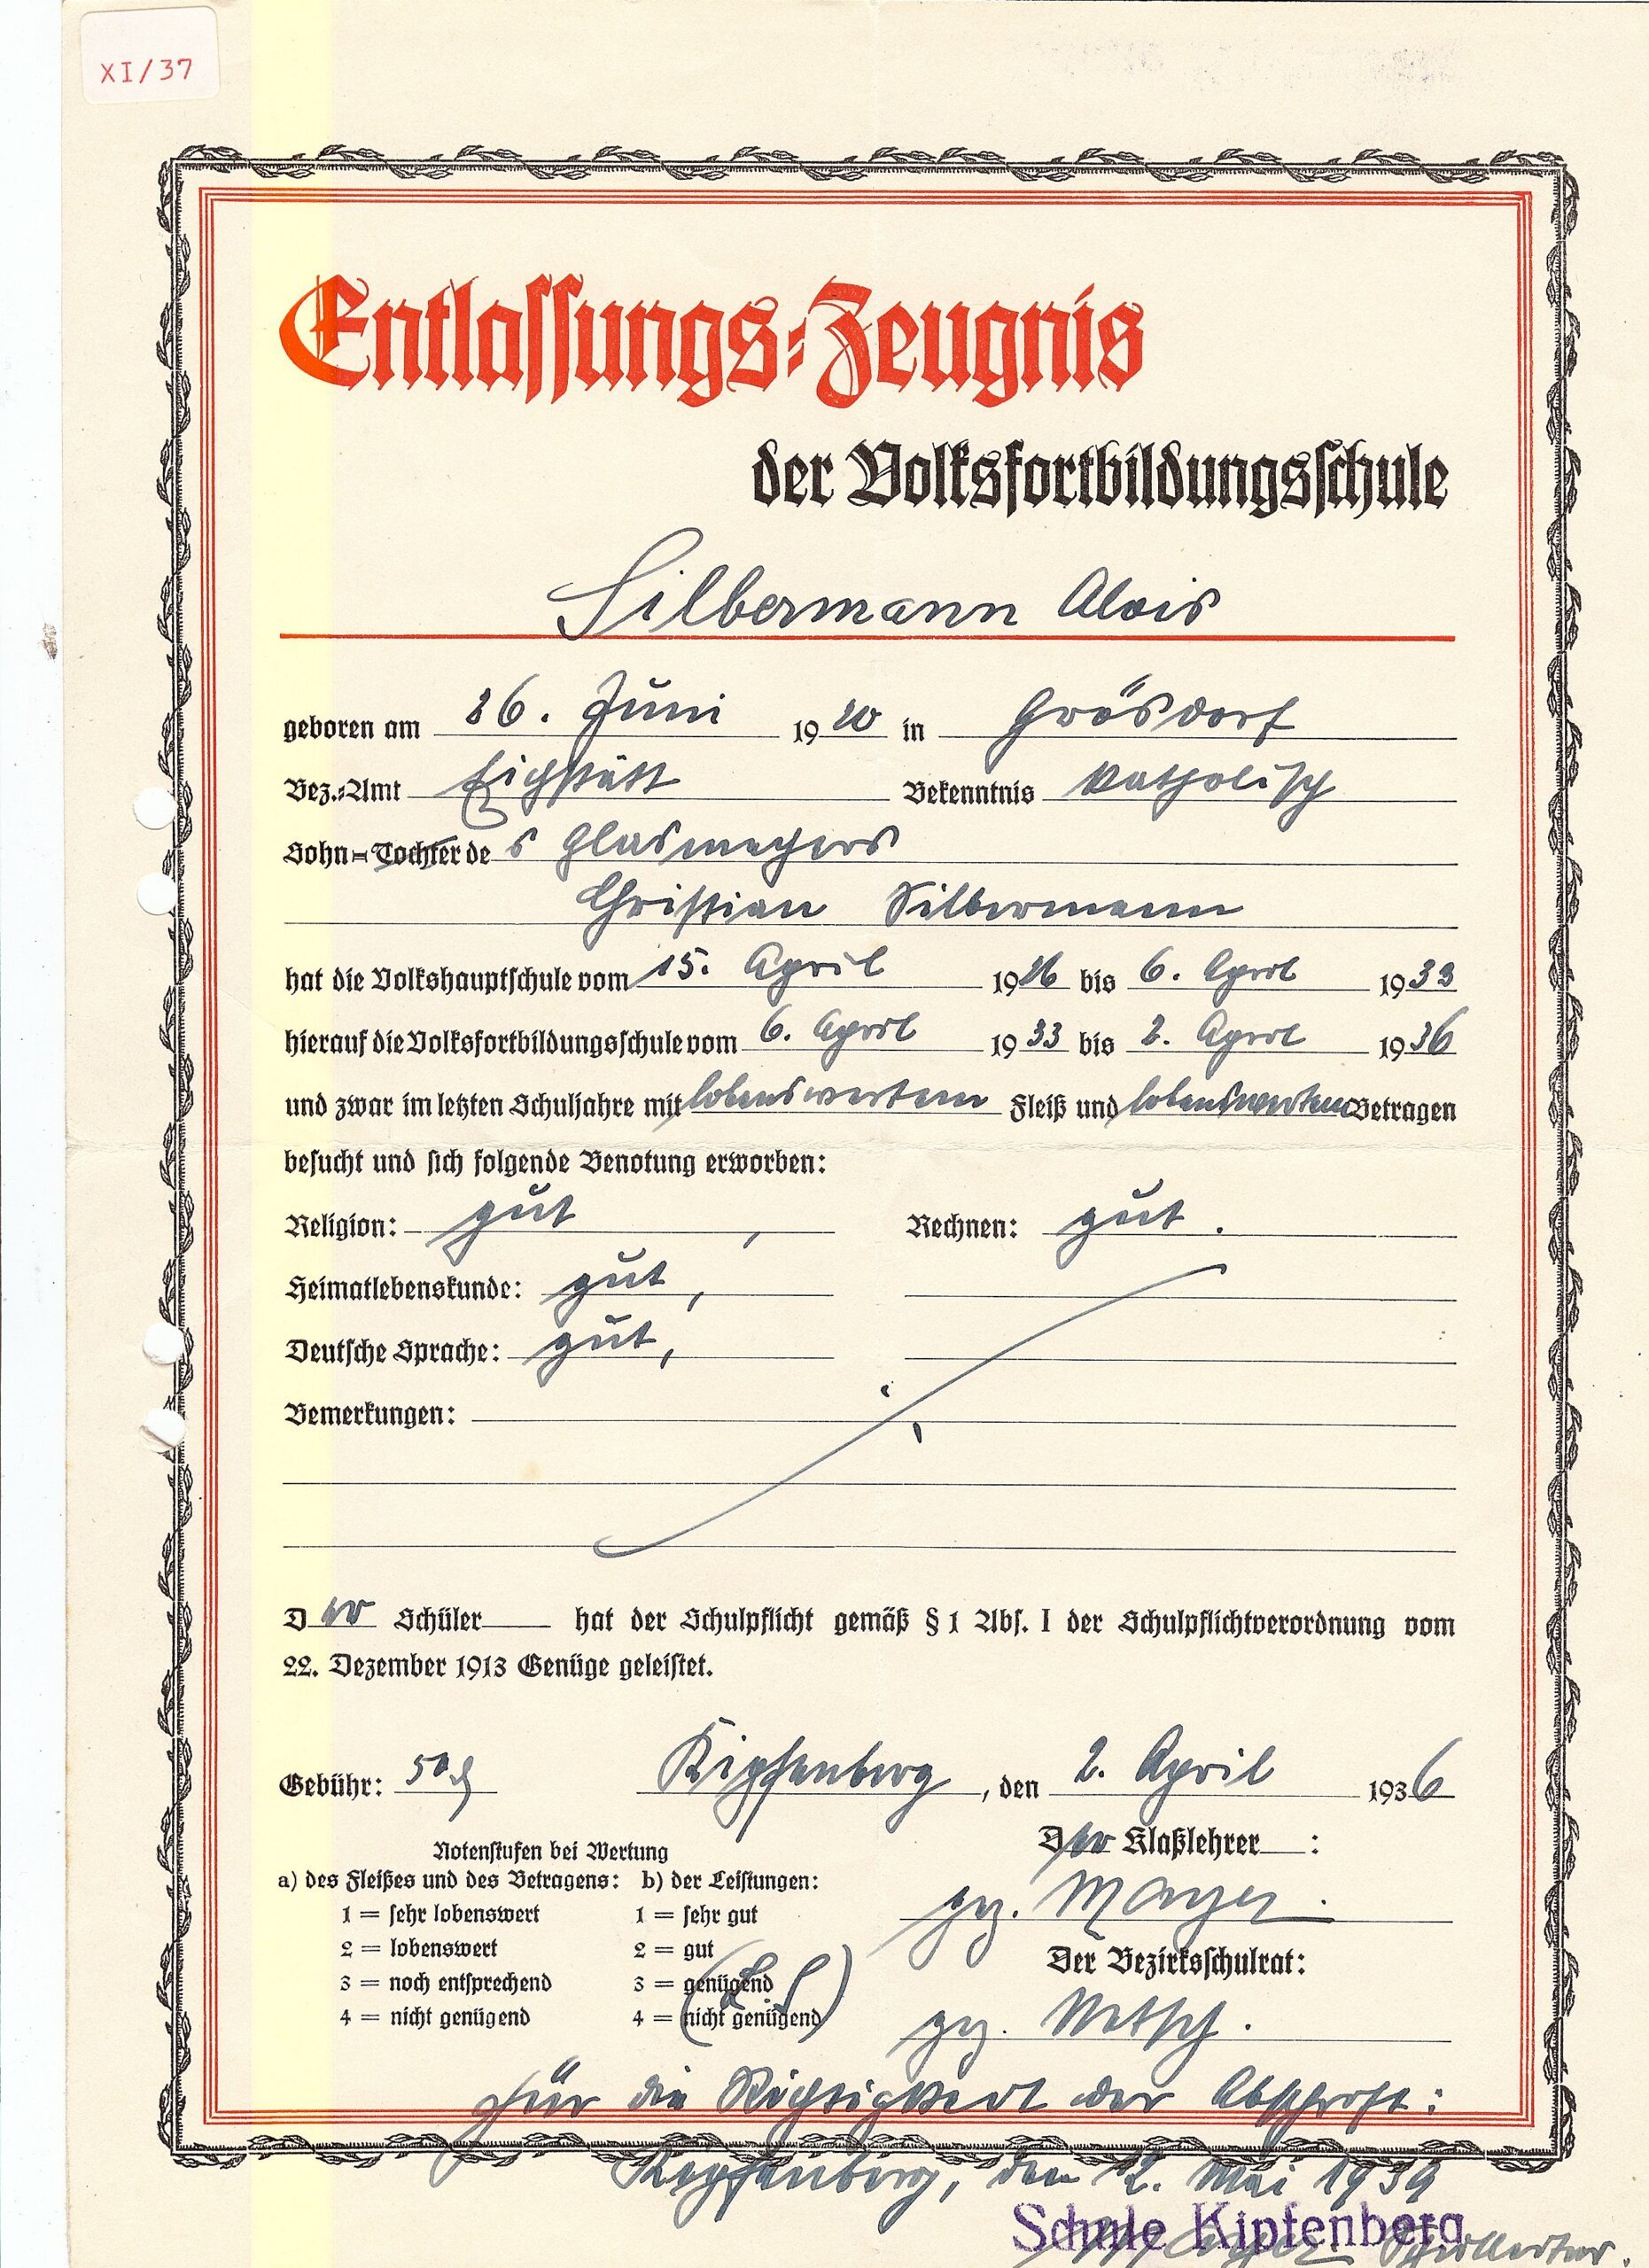 XI/37
Entlassungs-Zeugnis
der Volksfortbildungsschule
Silbermann Alois
geboren am 26. Juni 1920 in Grösdorf
Bez.-Amt Eichstätt Bekenntnis katholisch
Sohn-Tochter des
Christian Silbermann
hat die Volkshauptschule vom 15. April 1926 bis 6. April 1933
hierauf die Volksfortbildungsschule vom 6. April 1933 bis 2. April 1936
und zwar im letzten Schuljahre mit lobenswertem Fleiß und lobenswertem Betragen
besucht und sich folgende Benotung erworben:
Religion: gut, Rechnen: gut.
Heimatlebenskunde: gut,
Deutsche Sprache: gut,
Bemerkungen:
Der Schüler hat der Schulpflicht gemäß § 1 Abs. I der Schulpflichtverordnung vom
22. Dezember 1913 Genüge geleistet.
Gebühr: 50 Kipfenberg, den 2. April 1936
Der Klaßlehrer :
Notenstufen bei Wertung
a) des Fleißes und des Betragens: b) der Leistungen:
gez. Mayer.
1 = sehr lobenswert 1 = sehr gut
2 = lobenswert 2 = gut
Der Bezirksschulrat:
3 = noch entsprechend 3 = genügend
4 = nicht genügend 4 = nicht genügend
(L. S)
gez.
Für die Richtigkeit der Abschrift:
Kipfenberg, den 12. Mai 1939
Schule Kipfenberg